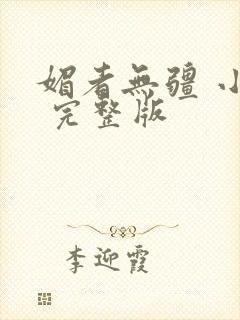 媚者無疆 小
完整版
李迎霞